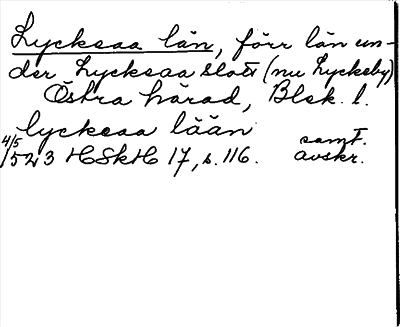 Lyckeaa län, förr län un-
der Lyckeaa slott (nu Lyckeby)
Östra härad, Blek. l.
lyckeaa lään
4/5 1523 HSkH 17, s. 116. samt. avskr.